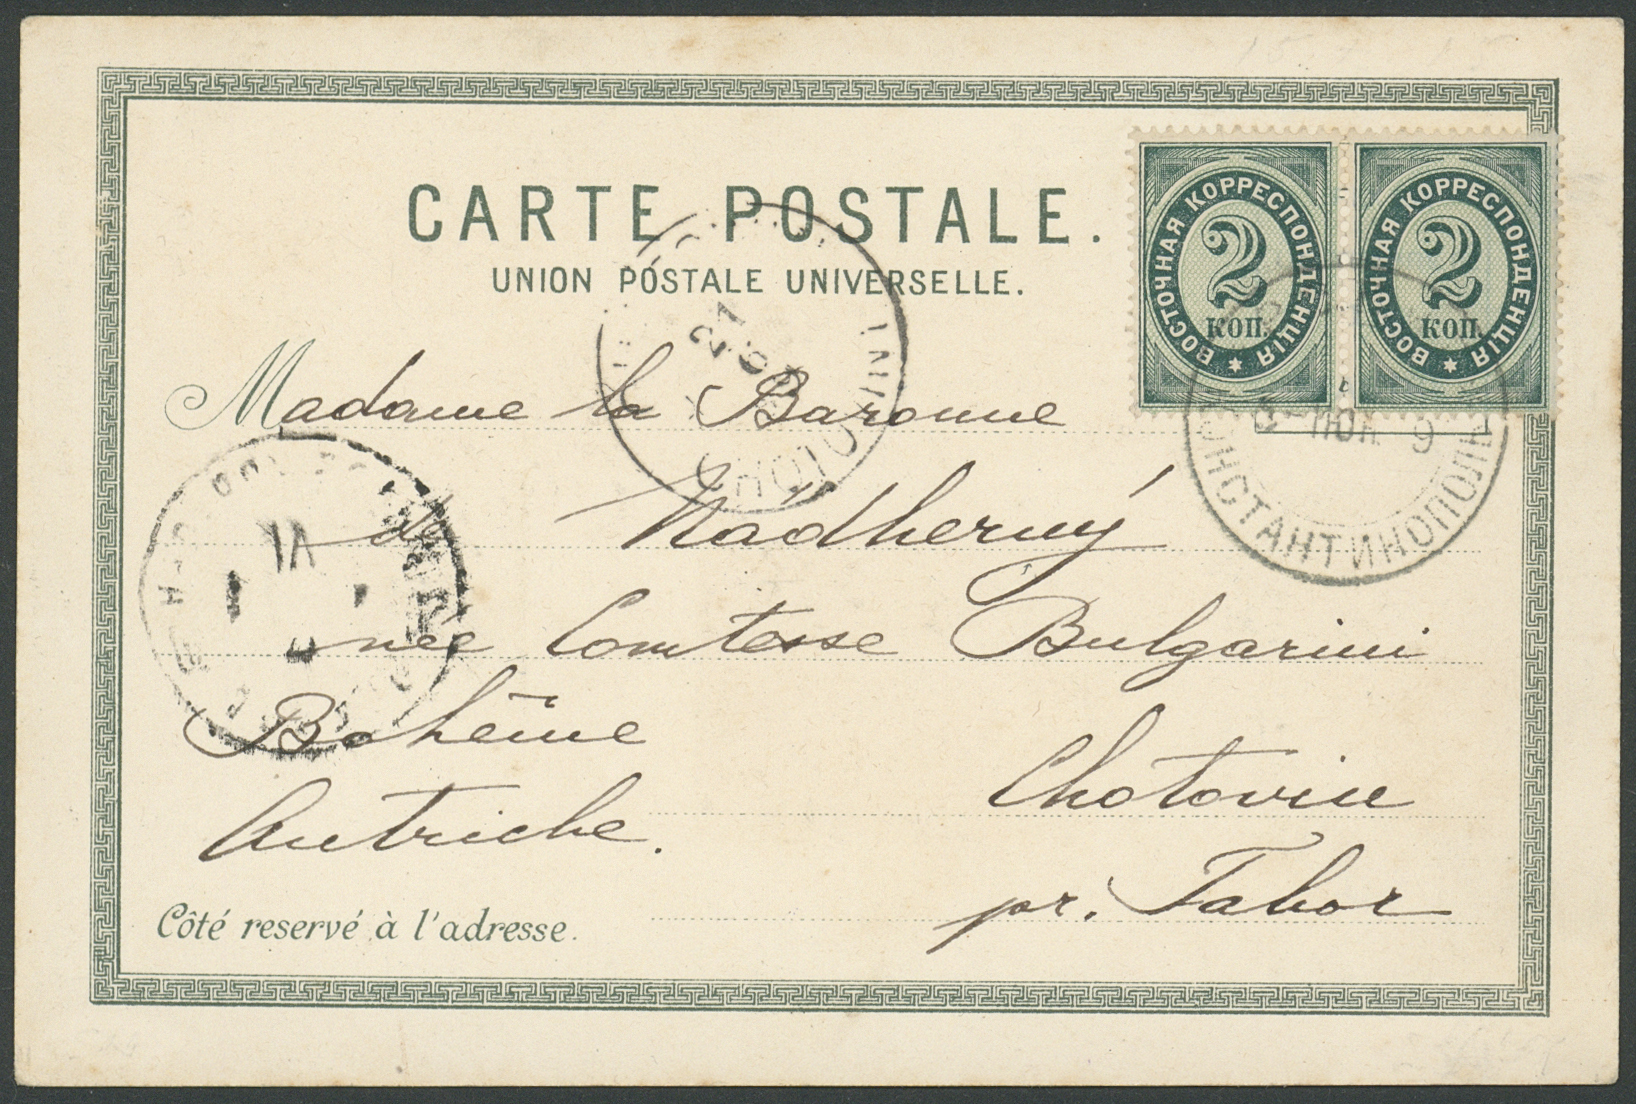 CARTE POSTALE.
UNION POSTALE UNIVERSELLE.
ВОСТОЧНАЯ КОРРЕСПОНДЕНЦІЯ
2
КОП.
ВОСТОЧНАЯ КОРРЕСПОНДЕНЦІЯ
2
КОП.
КОНСТАНТИНОПОЛЬ
Madame la Baronne
de Nádherný
née Comtesse Bulgarini
Bohême
Chotovice
Autriche.
pr. Tabor
Côté reservé à l'adresse.